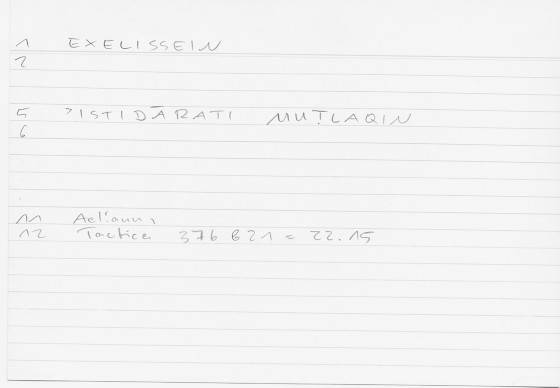 1 EXELISSEIN
2
5 ʾISTIDĀRATI MUṬLAQIN
6
11 Aelianus
12 Tactica 376 B21 = 22.15